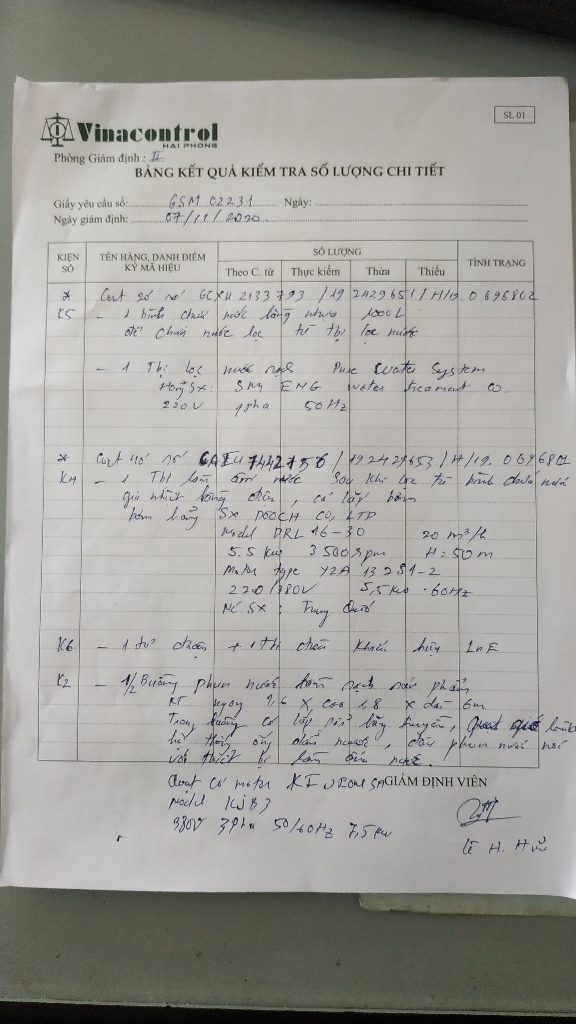 SL 01
Vinacontrol
HAI PHONG
Phòng Giám định : II
BẢNG KẾT QUẢ KIỂM TRA SỐ LƯỢNG CHI TIẾT
Giấy yêu cầu số: GSM 02231 Ngày:
Ngày giám định: 07/11/2020
KIỆN SỐ TÊN HÀNG, DANH ĐIỂM KÝ MÃ HIỆU SỐ LƯỢNG TÌNH TRẠNG
Theo C. từ Thực kiểm Thừa Thiếu
* Cont 20 số GCXU 2133793 / 19 2429651 / H/19. 0696802
K5 - 1 bình chứa nước bằng nhựa 1000L
để chứa nước lọc từ thị lọc nước
- 1 Thị lọc nước sạch Pure Water System
Hãng SX: ENG water treament co.
220V 1pha 50Hz
* Cont 40 số 7442756 / 192429653 / H/19. 0696801
- 1 Thị làm nước sau khi lọc từ bình chứa nước
gia nhiệt bằng điện, có lắp bơm
bơm bằng SX DOOCH CO, LTD
Model DRL 16-30 20 m³/h
5.5 kw 3500 rpm H = 50m
Motor type Y2A 132S1-2
220/380V 5,5 kw - 60Hz
Nc SX : Trung Quốc
K6 - 1 tủ điện + 1 Thị điện khiển
K2 - 1/2 Buồng phun nước làm sạch sản phẩm
KT ngang 1,6 x cao 1,8 x dài 6m
Trong buồng có lắp băng truyền, quạt
hệ thống ống dẫn nước, dàn phun nước nối
với thiết bị làm nước.
Quạt có motor
GIÁM ĐỊNH VIÊN
Model KJB3
380V 3pha 50/60Hz 7,5 kw
Lê H.